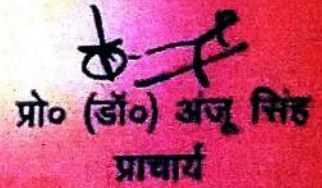 प्रो० (डॉ०) अंजू सिंह
प्राचार्य